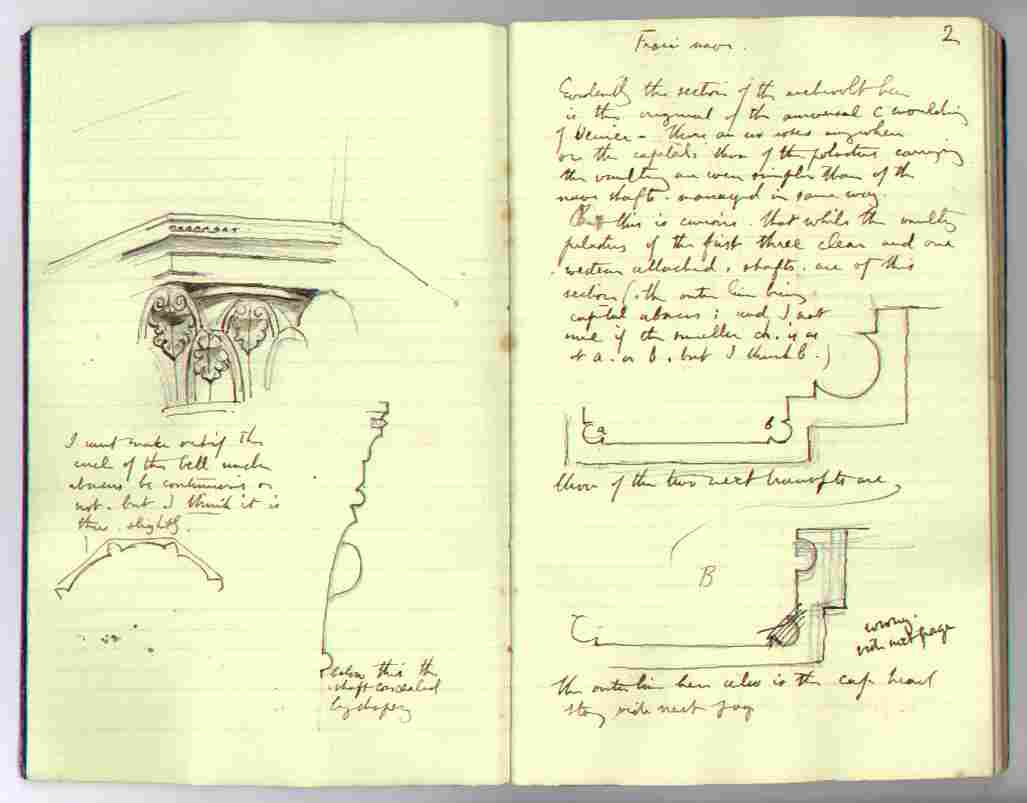 I must make out if the
circle of the bell under
abacus be continuous or
not. but I think it is
thus. slightly.
below this the
shaft concealed
by drapery
2
Frari nave.
Evidently the section of the archivolt here
is the original of the universal C moulding
of Venice - there are no roses anywhere
on the capitals those of the pilasters carrying
the vaulting are even simpler than of the
nave shafts. managed in same way.
But this is curious. that while the vaulting
pilasters of the first three clear and one
western attached, shafts. are of this
section (the outer line being
capital abacus; and I not
sure if the smaller ch. is as
at a. or b, but I think b.)
a
b
those of the two next transepts are,
B
wrong.
vide next page
the outer line here also is the cap head
stay vide next page